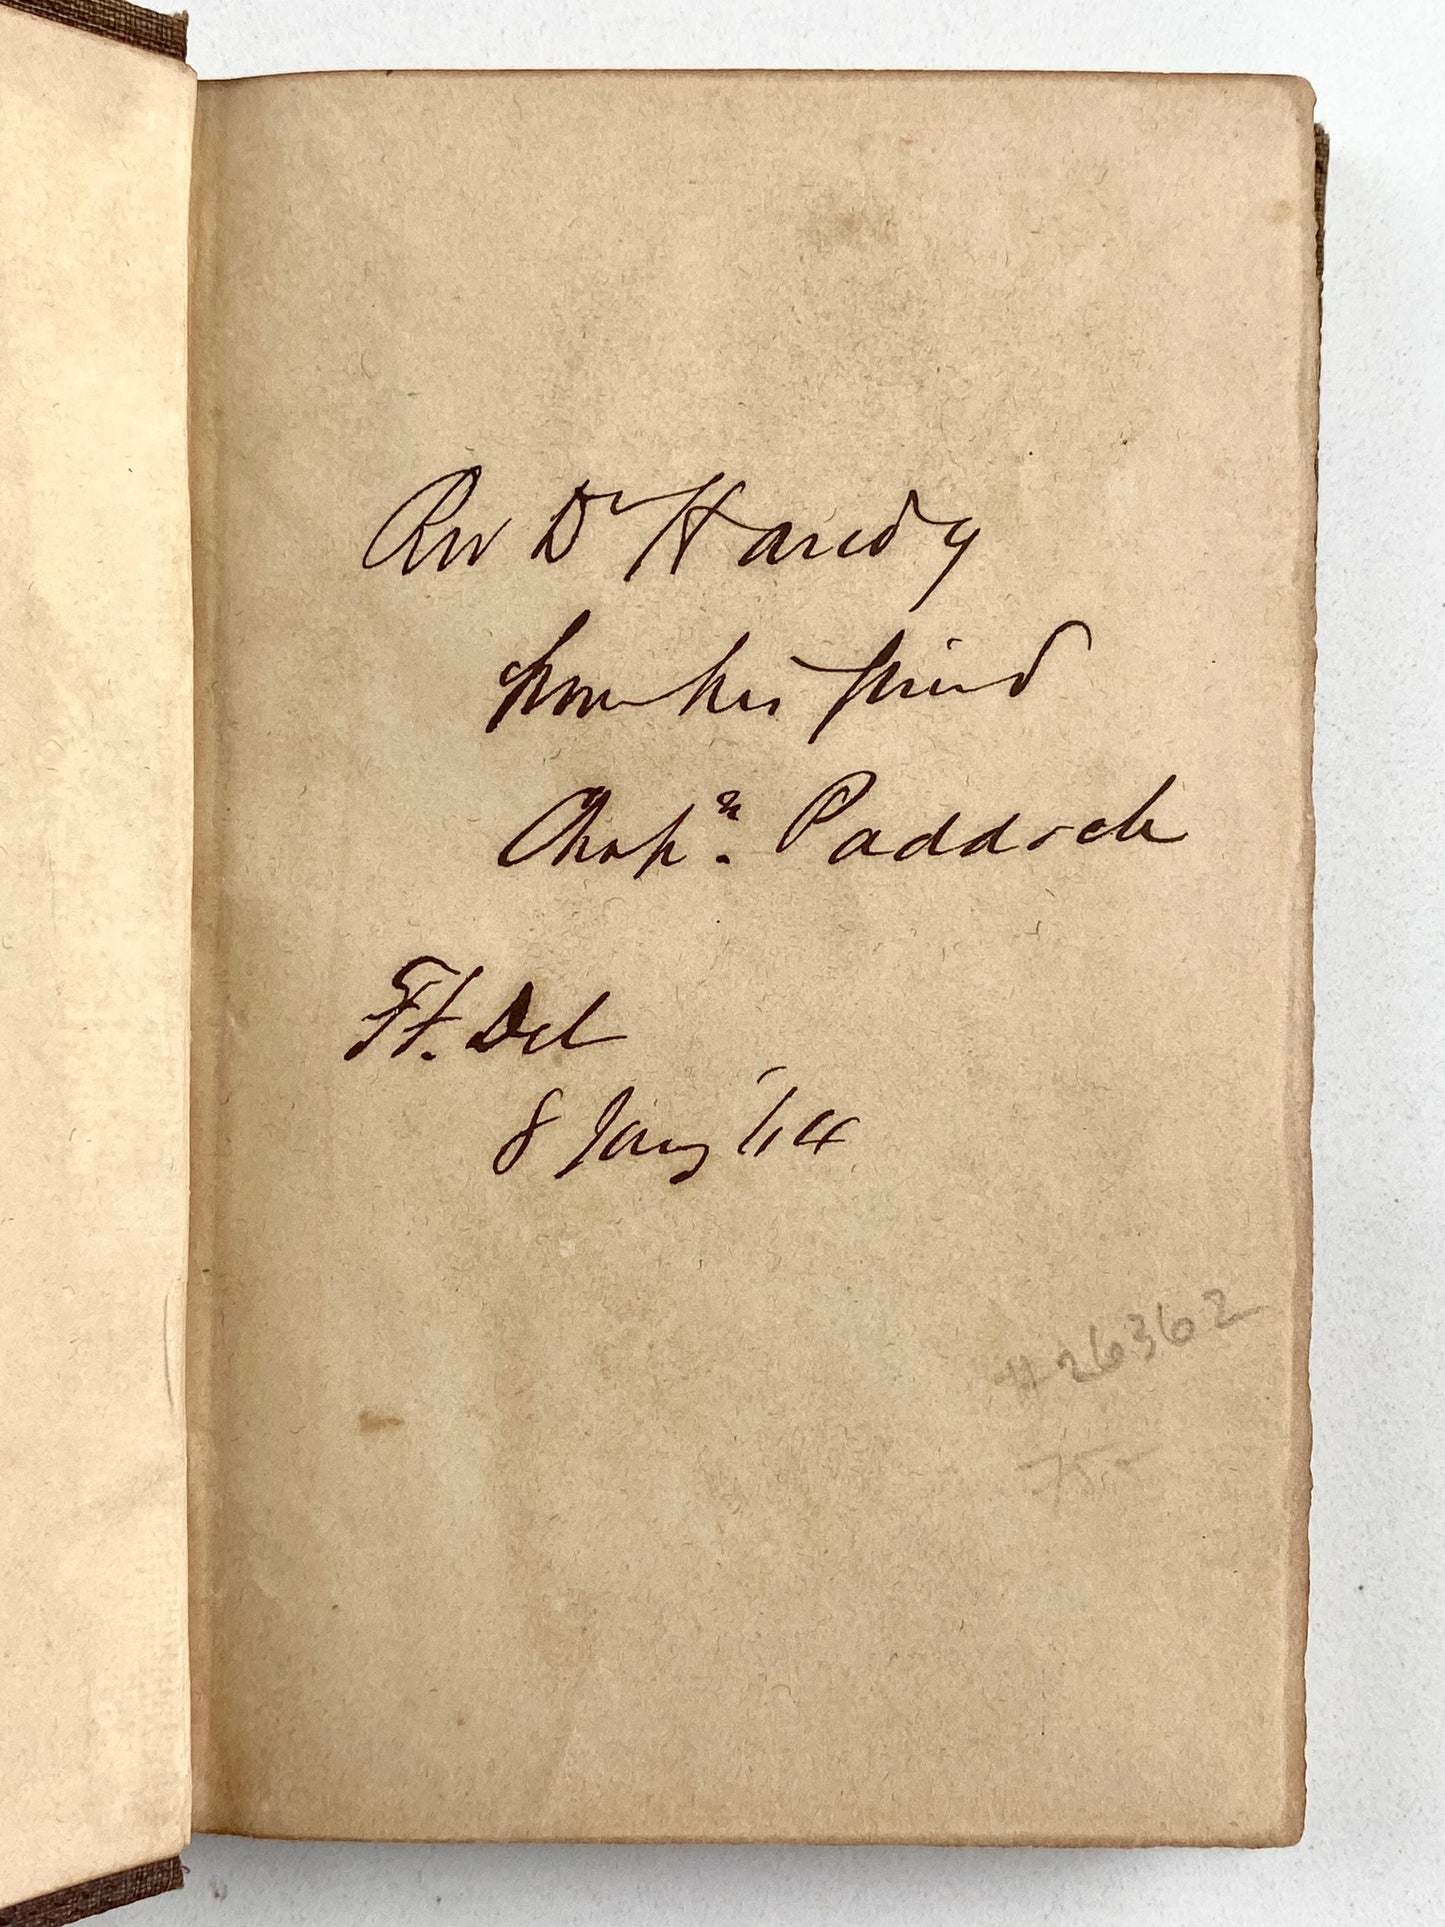 Rev Dr Handy
from his friend
Chapn. Paddock
Ft. Del
8 Jany '64
# 26362
75.-